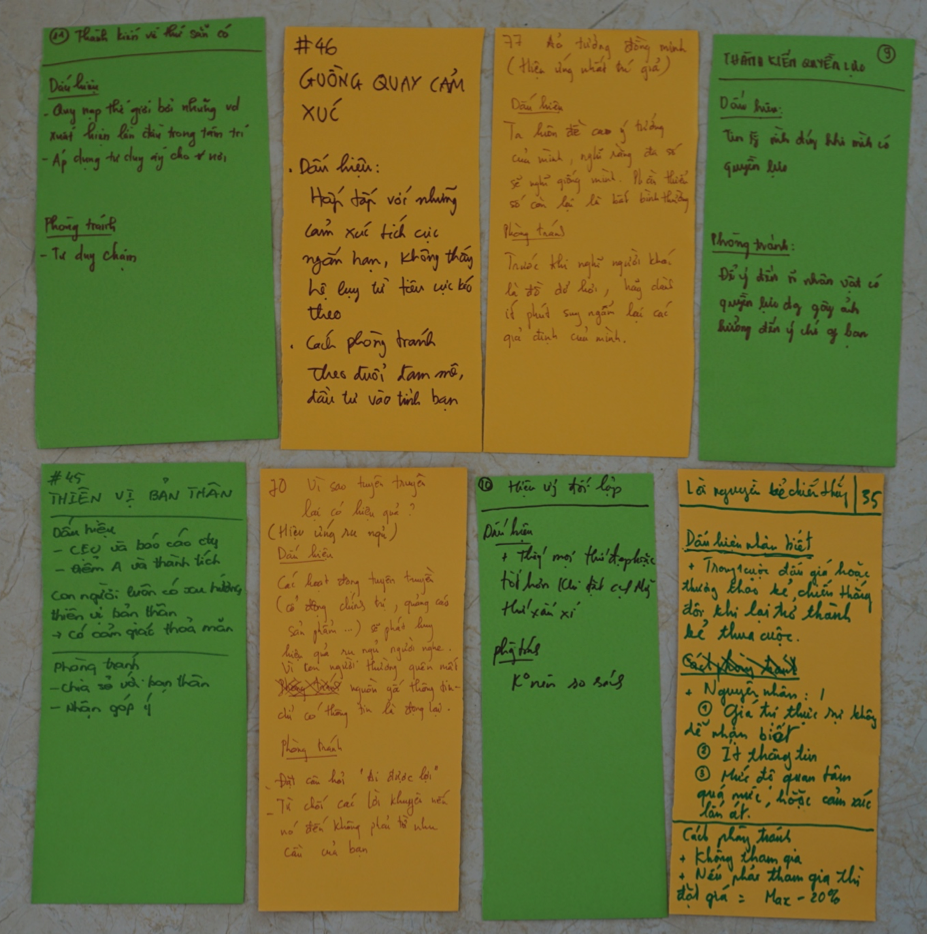 11 Thành kiến về thứ sẵn có
Dấu hiệu
- Quy nạp thế giới bởi những vd
xuất hiện lần đầu trong tâm trí
- Áp dụng tư duy ấy cho
Phòng tránh
- Tư duy chậm
#46
GUỒNG QUAY CẢM
XÚC
. Dấu hiệu:
Hấp tấp với những
cảm xúc tích cực
ngắn hạn, không thấy
hệ lụy từ tiêu cực
theo
. Cách phòng tránh
theo đuổi đam mê,
đầu tư vào tình bạn
77 Ảo tưởng đồng minh
(Hiệu ứng nhất trí giả)
Dấu hiệu
Ta luôn đề cao ý tưởng
của mình, nghĩ rằng đa số
sẽ nghĩ giống mình. Phần thiểu
số còn lại là bất bình thường
Phòng tránh
Trước khi nghĩ người khác
là đồ dở hơi, hãy dành
ít phút suy ngẫm lại các
giả định của mình.
THÀNH KIẾN QUYỀN LỰC 9
Dấu hiệu:
Tin mình đúng khi mình có
quyền lực
Phòng tránh:
Để ý đến nhân vật có
quyền lực đg gây ảnh
hưởng đến ý chí of bạn
#45
THIÊN VỊ BẢN THÂN
Dấu hiệu
- CEO và báo cáo cty
- Điểm A và thành tích
Con người luôn có xu hướng
thiên vị bản thân
→ Có cảm giác thoả mãn
Phòng tránh
- Chia sẻ với bạn thân
- Nhận góp ý
70 Vì sao tuyên truyền
lại có hiệu quả?
(Hiệu ứng ru ngủ)
Dấu hiệu
Các hoạt động tuyên truyền
(cổ động chính trị, quảng cáo
sản phẩm ...) sẽ phát huy
hiệu quả ru ngủ người nghe.
Vì con người thường quên mất
nguồn gốc thông tin
chỉ có thông tin là đọng lại.
Phòng tránh
- Đặt câu hỏi "Ai được lợi"
- Từ chối các lời khuyên nếu
nó đến không phải từ nhu
cầu của bạn
10 Hiệu ứng đối lập
Dấu hiệu
+ Thấy mọi thứ đẹp hoặc
tốt hơn khi đặt cạnh
thứ xấu xí
Phòng tránh
K° nên so sánh
Lời nguyền kẻ chiến thắng 35
Dấu hiệu nhận biết
+ Trong cuộc đấu giá hoặc
thương thảo kẻ chiến thắng
đôi khi lại trở thành
kẻ thua cuộc.
Cách phòng tránh
+ Nguyên nhân:
① Giá trị thực sự không
dễ nhận biết
② Ít thông tin
③ Mức độ quan tâm
quá mức, hoặc cảm xúc
lấn át.
Cách phòng tránh
+ Không tham gia
+ Nếu phải tham gia thì
đặt giá = Max - 20%